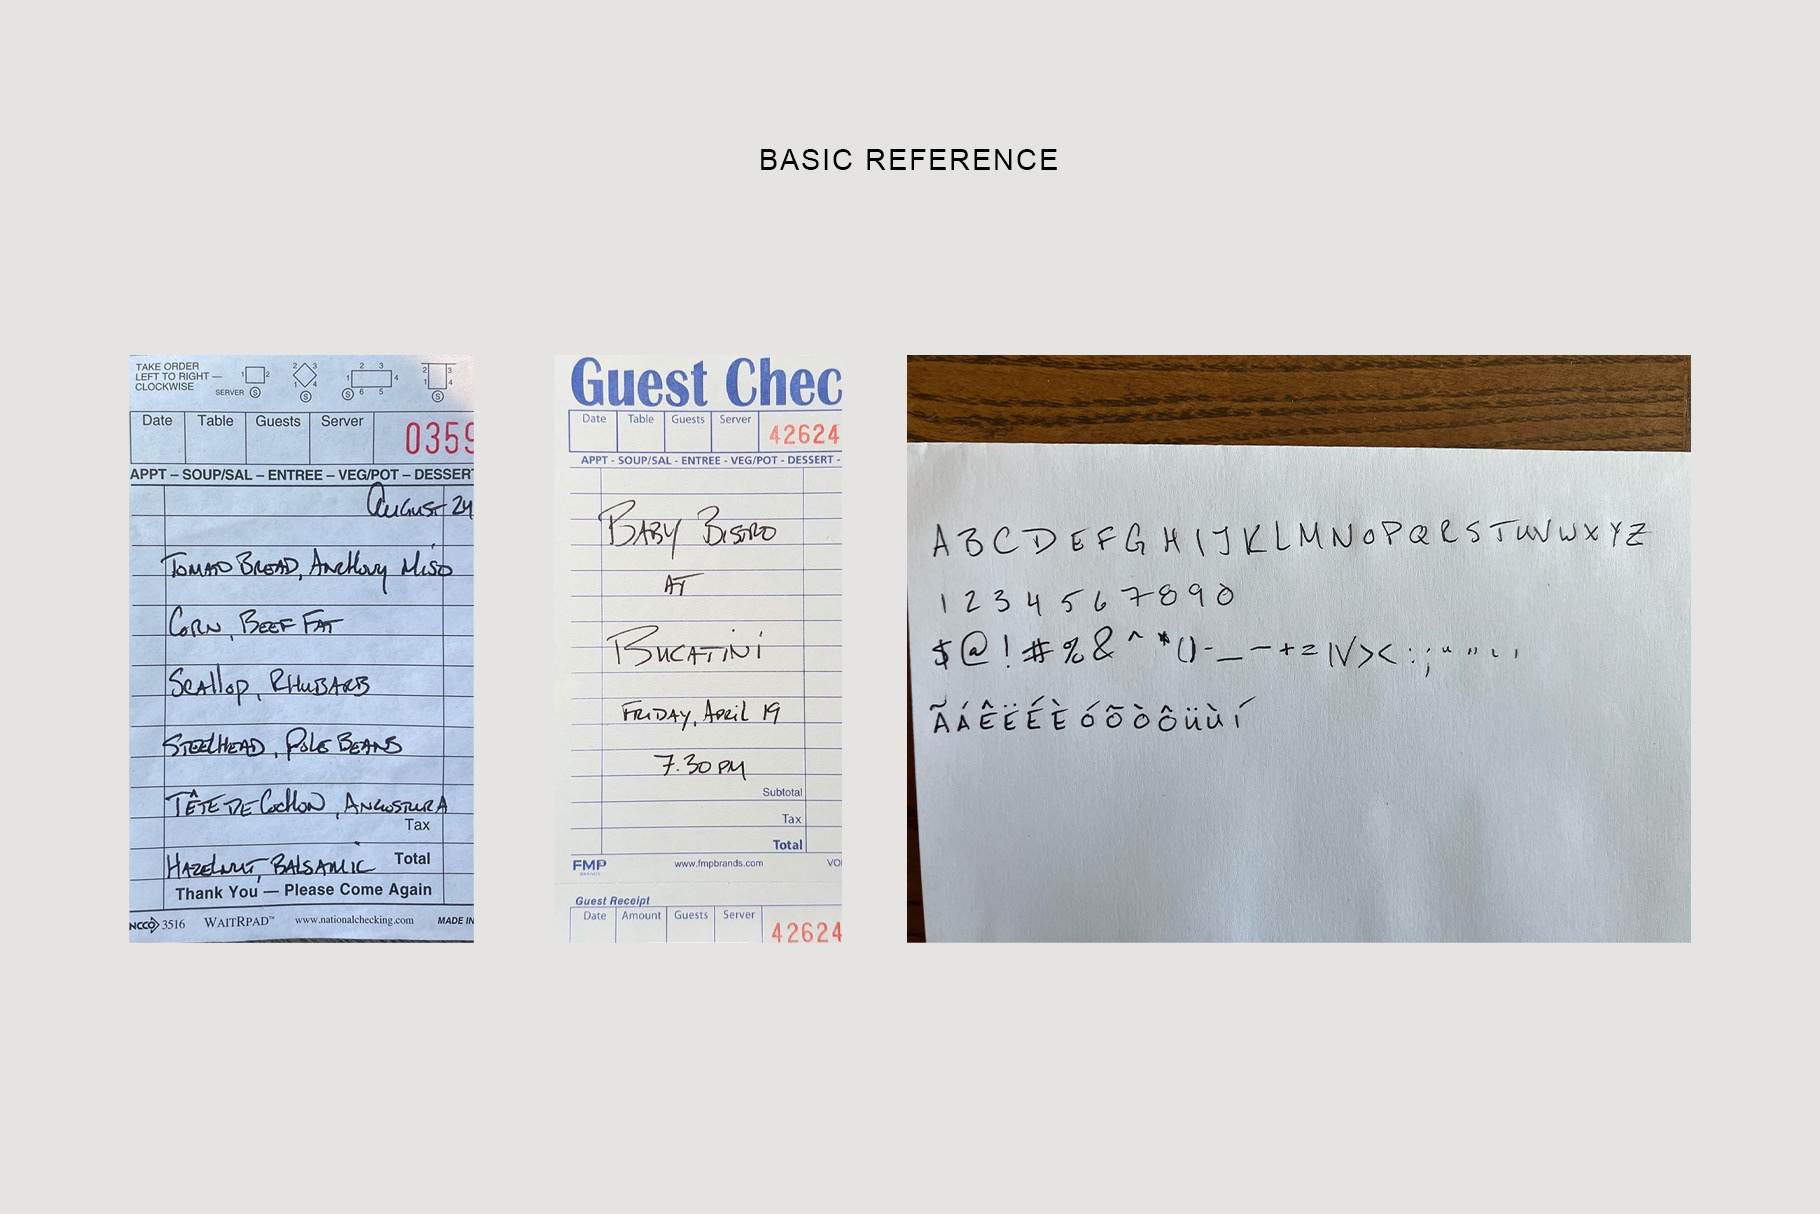 BASIC REFERENCE
TAKE ORDER
LEFT TO RIGHT —
CLOCKWISE
SERVER S
1 2
2 3
1 4
S
2 3
1 4
S 6 5
2 3
1 4
S
Date Table Guests Server 0359
APPT – SOUP/SAL – ENTREE – VEG/POT – DESSERT
AUGUST 24
TOMATO BREAD, ANCHOVY MISO
CORN, BEEF FAT
SCALLOP, RHUBARB
STEELHEAD, POLE BEANS
TÊTE DE COCHON, ANGOSTURA
Tax
HAZELNUT, BALSAMIC Total
Thank You — Please Come Again
NCCO 3516 WAITRPAD™ www.nationalchecking.com MADE IN
Guest Chec
Date Table Guests Server 42624
APPT - SOUP/SAL - ENTREE - VEG/POT - DESSERT -
BABY BISTRO
AT
BUCATINI
FRIDAY, APRIL 19
7.30 PM
Subtotal
Tax
Total
FMP www.fmpbrands.com VO
BRANDS
Guest Receipt
Date Amount Guests Server 42624
A B C D E F G H I J K L M N O P Q R S T U V W X Y Z
1 2 3 4 5 6 7 8 9 0
$ @ ! # % & ^ * () - _ – + = | \ / > < : ; “ ” ‘ ’
Ã Á Ê Ë É È Ó Õ Ò Ô Ü Ù Í